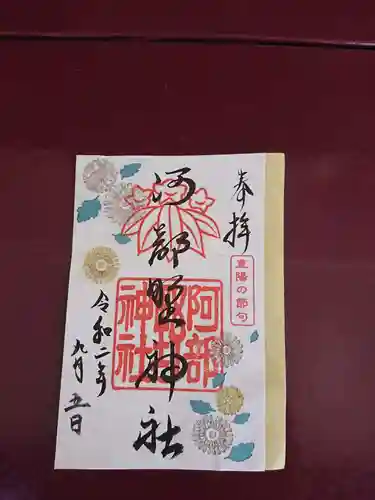 奉拝
重陽の節句
阿部野神社
阿部野神社
令和二年
九月五日